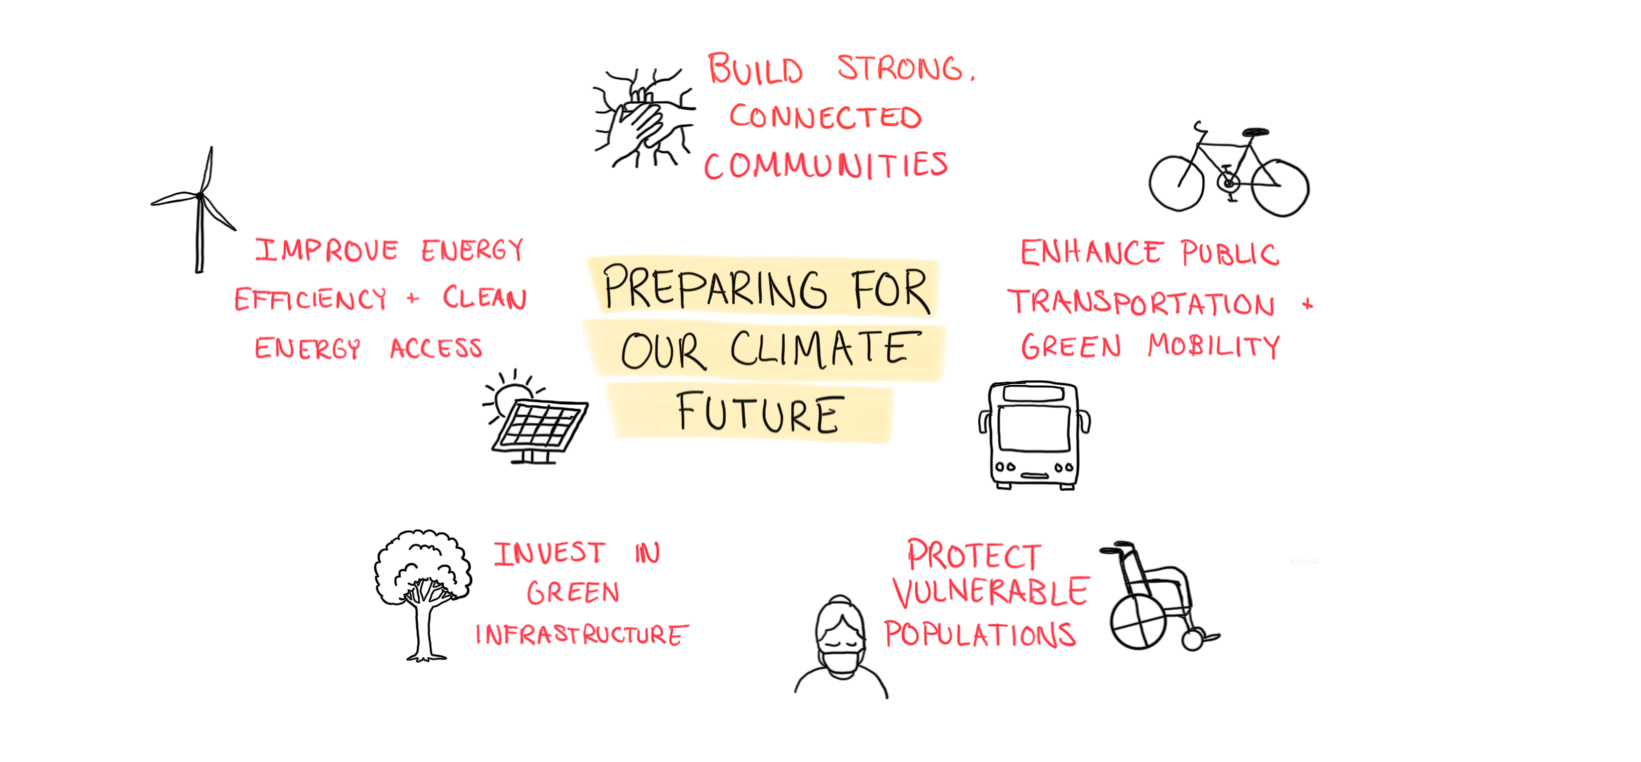 BUILD STRONG.
CONNECTED
COMMUNITIES
IMPROVE ENERGY
EFFICIENCY + CLEAN
ENERGY ACCESS
PREPARING FOR
OUR CLIMATE
FUTURE
ENHANCE PUBLIC
TRANSPORTATION +
GREEN MOBILITY
INVEST IN
GREEN
INFRASTRUCTURE
PROTECT
VULNERABLE
POPULATIONS